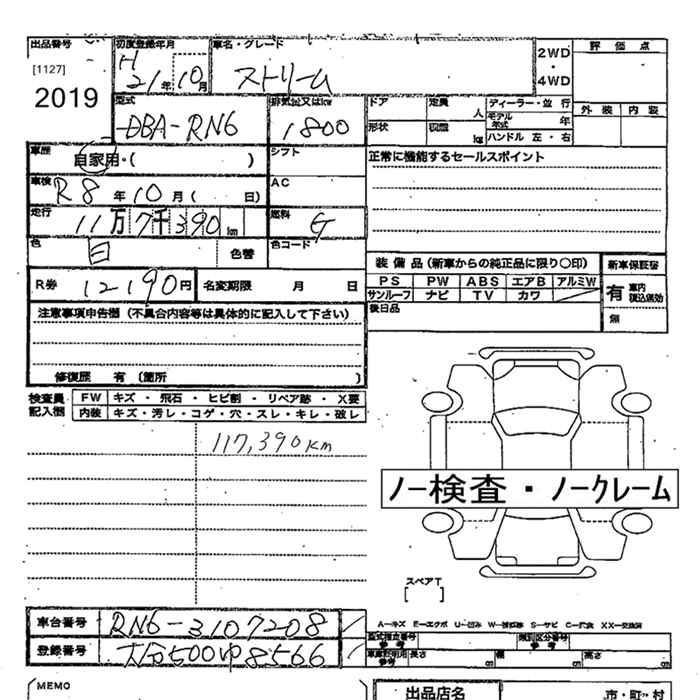 出品番号
[1127]
2019
初度登録年月
H 21年10月
車名・グレード
ストリーム
2WD
・
4WD
評価点
外装 内装
型式
DBA-RN6
排気量又はkw
1800
ドア
定員
人
ディーラー・並行
モデル年式 年
形状
積載
kg
ハンドル 左・右
車歴
自家用・( )
シフト
正常に機能するセールスポイント
車検
R8年10月( 日)
AC
走行
11万7千390km
燃料
G
色
白
色替
色コード
装備品(新車からの純正品に限り〇印)
新車保証書
PS PW ABS エアB アルミW
サンルーフ ナビ TV カワ
有 車内積込有効
無
後日品
R券
12190円
名変期限 月 日
注意事項申告欄(不具合内容等は具体的に記入して下さい)
修復歴 有(箇所 )
検査員記入欄
FW キズ・飛石・ヒビ割・リペア跡・X要
内装 キズ・汚レ・コゲ・穴・スレ・キレ・破レ
117,390km
ノー検査・ノークレーム
スペアT
[ ]
車台番号
RN6-3107208
登録番号
A-キズ E-エクボ U-凹み W-補修跡 S-サビ C-腐食 XX-交換済
型式指定番号
参考
類別区分番号
参考
車庫証明用
参考
長さ
幅
高さ
MEMO
出品店名
市・町・村